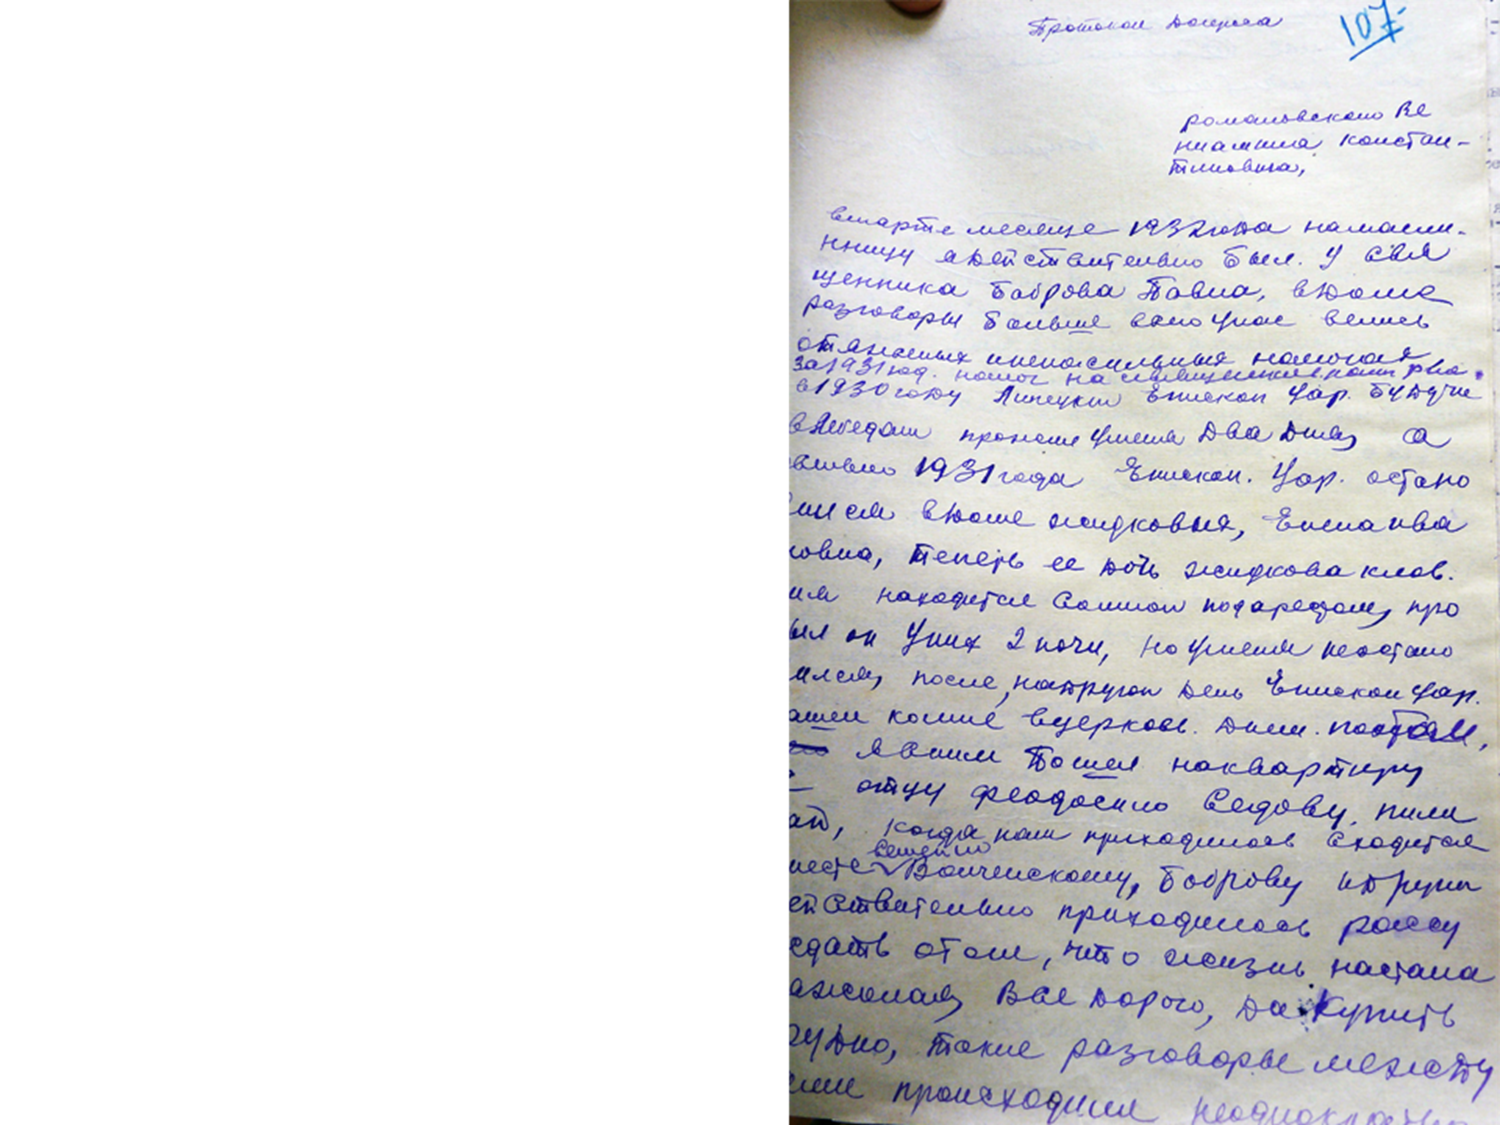 Протокол Допроса
107-
романовского Ве
ниамина Констан-
тиновича,
вмарте месяце 1932года намасле-
нницу я Действительно был. У Свя
щенника Боброва Павла, вдоме
разговоры больше всего унас велись
отяжелых инепосильных налогах
за1931год. налог на священников
в1930году Липецкий Епископ Уар. Будучи
вЛебедяни проживал уменя Два Дня, а
1931года Епископ. Уар. остано
вился вдоме жидковых, Елена ива
новна, теперь ее дочь жидкова клав.
находится Сомной подарестом, про
был он Уних 2 ночи, ноуменя неостано
вился, после, надругой День Епископ Уар.
вцерковь.
я сним Пошел наквартиру
отцу феодосию Седову, пили
чай, когда нам приходилось Сходится
вместе Воиченскому, Боброву идруги
ействительно приходилось рассу
ждать отом, что жизнь настала
тяжолая, Все Дорого, Да Купить
трудно, такие разговоры между
нами происходили неоднократно